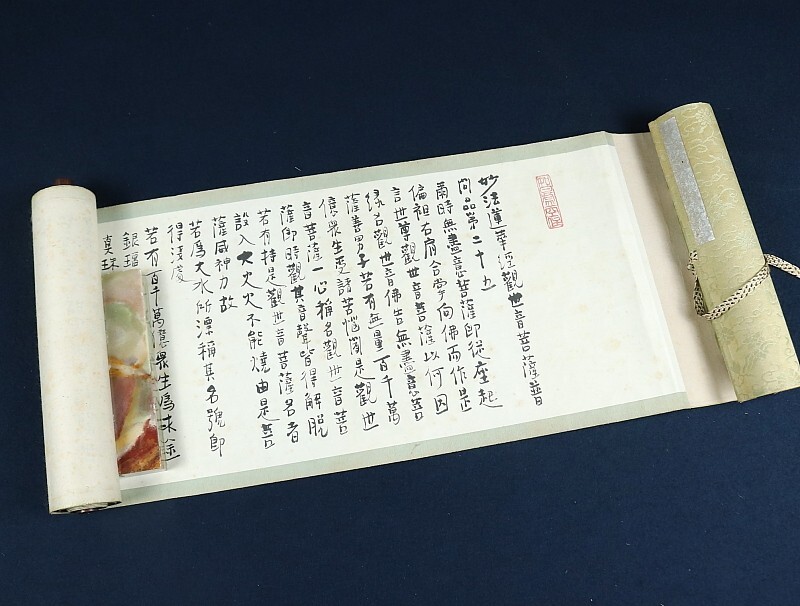 妙法蓮華經觀世音菩薩普
門品第二十五
爾時無盡意菩薩即從座起
偏袒右肩合掌向佛而作是
言世尊觀世音菩薩以何因
緣名觀世音佛告無盡意菩
薩善男子若有無量百千萬
億衆生受諸苦惱聞是觀世
音菩薩一心稱名觀世音菩
薩即時觀其音聲皆得解脫
若有持是觀世音菩薩名者
設入大火火不能燒由是菩
薩威神力故
若爲大水所漂稱其名號即
得淺處
若有百千萬億衆生爲求金
銀瑠
真珠